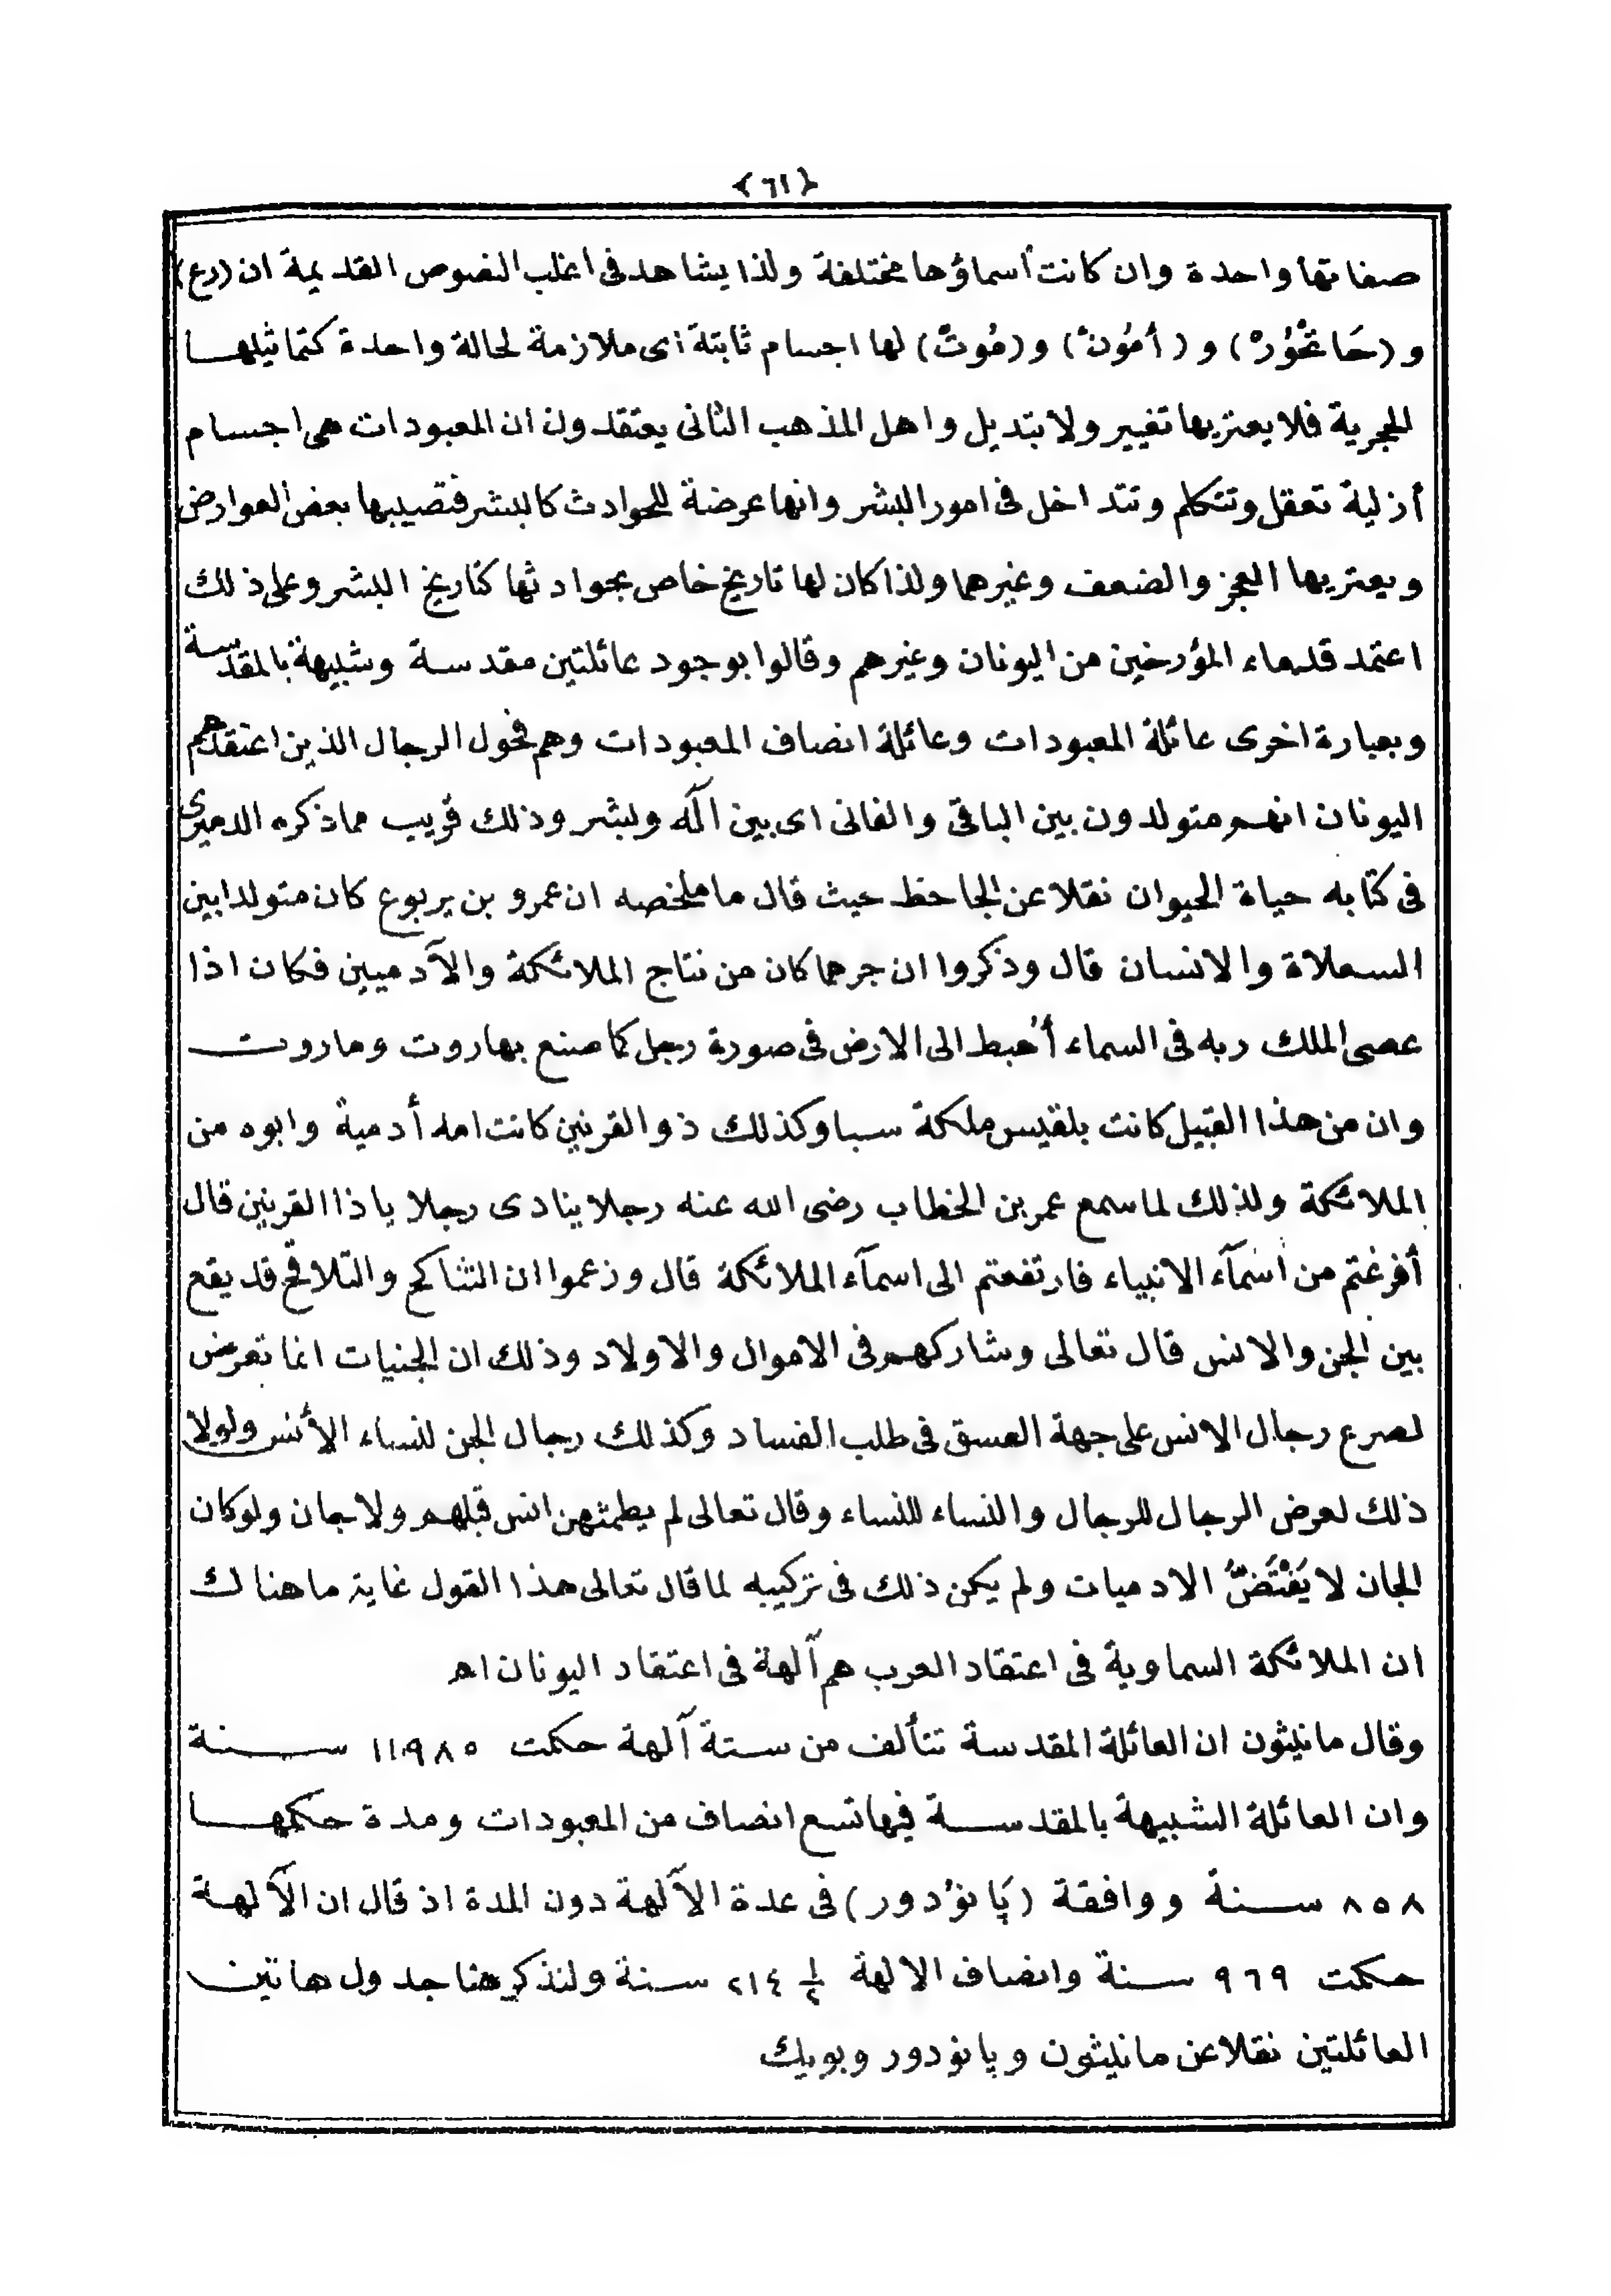 ﴿٦١﴾
صفاتها واحدة وان كانت أسماؤها مختلفة ولذا يشاهد فى اغلب النصوص القديمة ان (رع)
و (حَاتْحُوُرْ) و (أمُونْ) و (مُوتْ) لها اجسام ثابتة اى ملازمة لحالة واحدة كتماثيلها
الحجرية فلا يعتريها تغيير ولا تبديل واهل المذهب الثانى يعتقدون ان المعبودات هى اجسام
أزلية تعقل وتتكلم وتتداخل فى امور البشر وانها عرضة للحوادث كالبشر فتصيبها بعض العوارض
ويعتريها العجز والضعف وغيرهما ولذا كان لها تاريخ خاص بحوادثها كتاريخ البشر وعلى ذلك
اعتمد قدماء المؤرخين من اليونان وغيرهم وقالوا بوجود عائلتين مقدسة وشبيهة بالمقدسة
وبعبارة اخرى عائلة المعبودات وعائلة انصاف المعبودات وهم فحول الرجال الذين اعتقدهم
اليونان انهم متولدون بين الباقى والفانى اى بين اله وبشر وذلك قريب مما ذكره الدميرى
فى كتابه حياة الحيوان نقلا عن الجاحظ حيث قال ما ملخصه ان عمرو بن يربوع كان متولدا بين
السعلاة والانسان قال وذكروا ان جرهما كان من نتاج الملائكة والآدميين فكان اذا
عصى الملك ربه فى السماء أُهبط الى الارض فى صورة رجل كما صنع بهاروت وماروت
وان من هذا القبيل كانت بلقيس ملكة سبا وكذلك ذو القرنين كانت امه أدمية وابوه من
الملائكة ولذلك لما سمع عمر بن الخطاب رضى الله عنه رجلا ينادى رجلا يا ذا القرنين قال
أفرغتم من اسمآء الانبياء فارتفعتم الى اسمآء الملائكة قال وزعموا ان التناكح والتلاقح قد يقع
بين الجن والانس قال تعالى وشاركهم فى الاموال والاولاد وذلك ان الجنيات انما تعرض
لصرع رجال الانس على جهة العسق فى طلب الفساد وكذلك رجال الجن لنساء الأنس ولولا
ذلك لعرض الرجال للرجال والنساء للنساء وقال تعالى لم يطمثهن انس قبلهم ولا جان ولو كان
الجان لا يَفْتَضُّ الادميات ولم يكن ذلك فى تركيبه لما قال تعالى هذا القول غاية ما هنالك
ان الملائكة السماوية فى اعتقاد العرب هم آلهة فى اعتقاد اليونان اهـ
وقال مانيثون ان العائلة المقدسة تتألف من ستة آلهة حكمت ١١٩٨٥ سنة
وان العائلة الشبيهة بالمقدسة فيها تسع انصاف من المعبودات ومدة حكمها
٨٥٨ سنة ووافقة (پانؤدور) فى عدة الآلهة دون المدة اذ قال ان الآلهة
حكمت ٩٦٩ سنة وانصاف الالهة ٢١٤ ١/٢ سنة ولنذكر هنا جدول هاتين
العائلتين نقلا عن مانيثون وپانؤدور وبويك